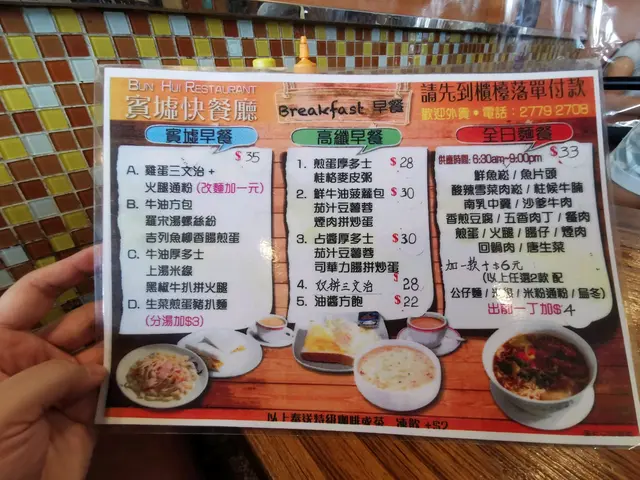 BUN HUI RESTAURANT
賓墟快餐廳
Breakfast 早餐
請先到櫃檯落單付款
歡迎外賣・電話：2779 2708
賓墟早餐
$35
A. 雞蛋三文治 +
火腿通粉 (改麵加一元)
B. 牛油方包
羅宋湯螺絲粉
吉列魚柳香腸煎蛋
C. 牛油厚多士
上湯米線
黑椒牛扒拼火腿
D. 生菜煎蛋豬扒麵
(分湯加$3)
高纖早餐
1. 煎蛋厚多士 $28
桂格麥皮粥
2. 鮮牛油菠蘿包 $30
茄汁豆薯蓉
煙肉拼炒蛋
3. 占醬厚多士 $30
茄汁豆薯蓉
司華力腸拼炒蛋
4. 双拼三文治 $28
5. 油醬方飽 $22
全日麵餐
供應時間: 6:30am~9:00pm $33
鮮魚崧 / 魚片頭
酸辣雪菜肉崧 / 柱候牛腩
南乳中翼 / 沙爹牛肉
香煎豆腐 / 五香肉丁 / 餐肉
煎蛋 / 火腿 / 腸仔 / 煙肉
回鍋肉 / 唐生菜
加一款+$6元
(以上任選2款 配
公仔麵 / 米粉通粉 / 烏冬)
出前一丁加$4
以上奉送特級咖啡或茶 凍飲+$2